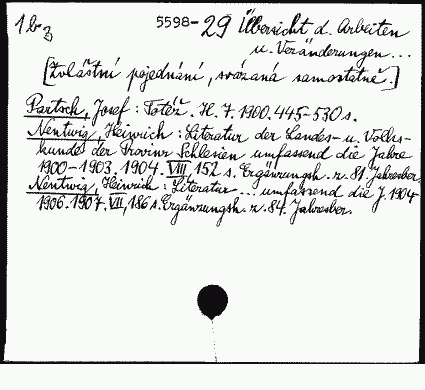 1b3 5598-29 Übersicht d. Arbeiten
u. Veränderungen...
[Zvláštní pojednání, svázaná samostatně.]
Partsch, Josef: Totéž. H. 7. 1900. 445-530 s.
Nentwig, Heinrich: Literatur der Landes- u. Volks-
kunde der Provinz Schlesien umfassend die Jahre
1900-1903. 1904. VIII, 152 s. Ergänzungsh. z. 81. Jahresber.
Nentwig, Heinrich: Literatur... umfassend die J. 1904-
1906. 1907. VII, 186 s. Ergänzungsh. z. 84. Jahresber.